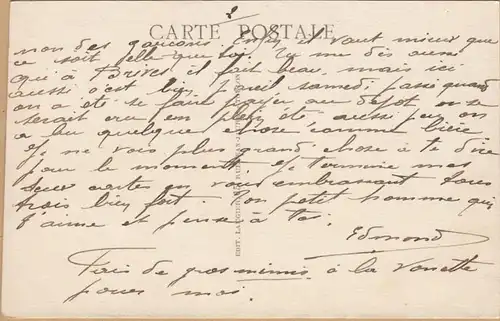 2
CARTE POSTALE
non des garçons. Enfin il vaut mieux que
ce soit elle que toi. Tu me dis aussi
qu'à Brives il fait beau, mais ici
aussi c'est bien pareil samedi passé quand
on a été se faire payer au dépôt on se
serait cru en plein été, aussi
a bu quelque chose comme bière
Et je ne vois plus grand chose à te dire
pour le moment. Je termine mes
deux cartes en vous embrassant tous
trois bien fort. Ton petit homme qui
t'aime et pense à toi.
Edmond
Fais de gros mimis à la
pour moi.